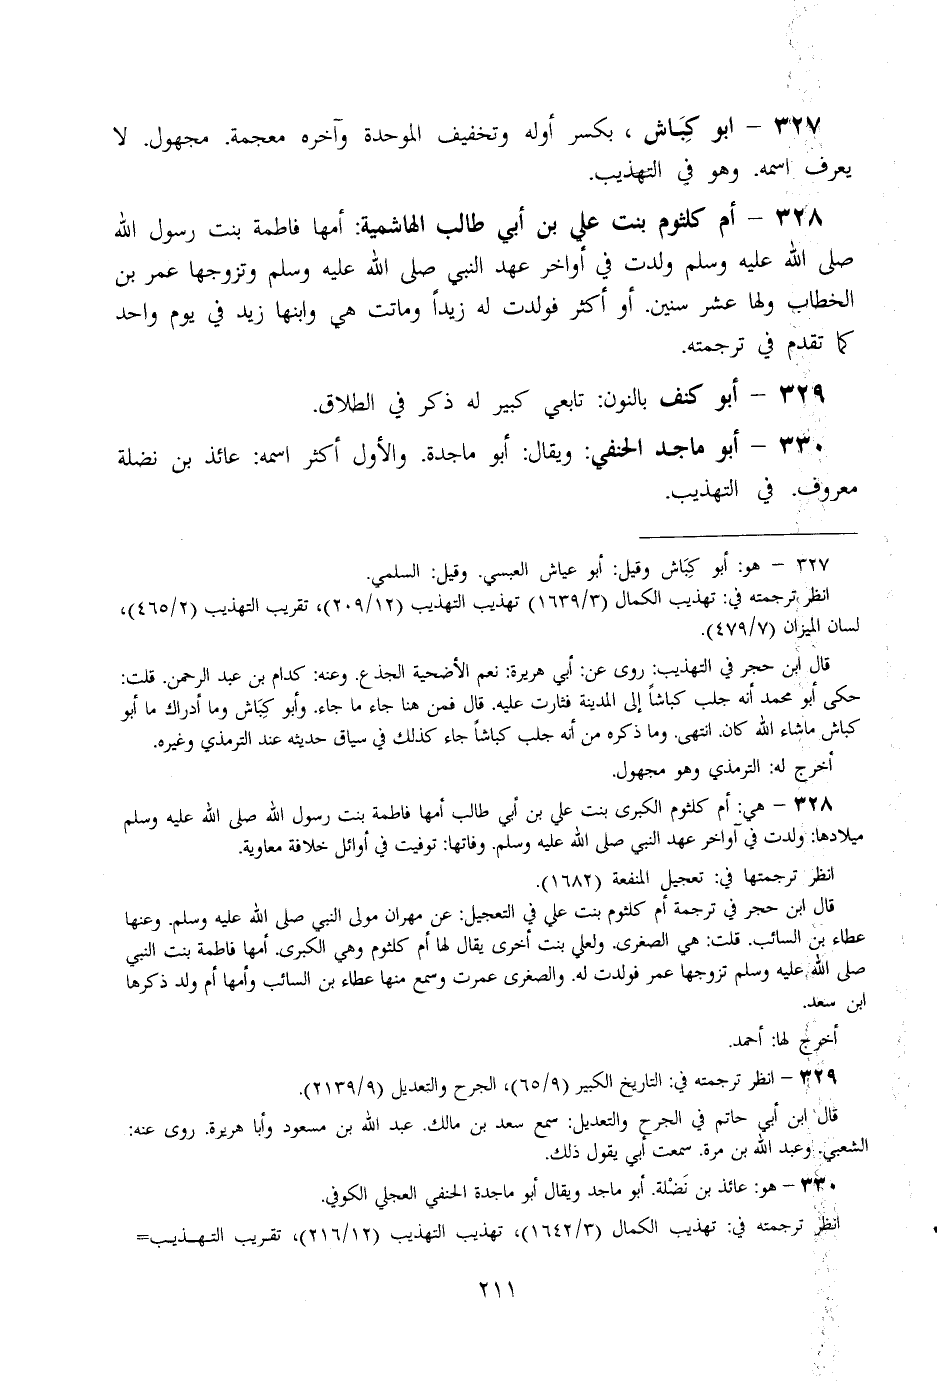 ٣٢٧ – ابو كِبَـاش ، بكسر أوله وتخفيف الموحدة وآخره معجمة. مجهول. لا
يعرف اسمه. وهو في التهذيب.
٣٢٨ – أم كلثوم بنت علي بن أبي طالب الهاشمية: أمها فاطمة بنت رسول الله
صلى الله عليه وسلم ولدت في أواخر عهد النبي صلى الله عليه وسلم وتزوجها عمر بن
الخطاب ولها عشر سنين. أو أكثر فولدت له زيداً وماتت هي وابنها زيد في يوم واحد
كما تقدم في ترجمته.
٣٢٩ – أبو كنف بالنون: تابعي كبير له ذكر في الطلاق.
٣٣٠ – أبو ماجد الحنفي: ويقال: أبو ماجدة. والأول أكثر اسمه: عائذ بن نضلة
معروف. في التهذيب.
٣٢٧ – هو: أبو كِبَاش وقيل: أبو عياش العبسي. وقيل: السلمي.
انظر ترجمته في: تهذيب الكمال (١٦٣٩/٣) تهذيب التهذيب (٢٠٩/١٢)، تقريب التهذيب (٤٦٥/٢)،
لسان الميزان (٤٧٩/٧).
قال ابن حجر في التهذيب: روى عن: أبي هريرة: نعم الأضحية الجذع. وعنه: كدام بن عبد الرحمن. قلت:
حكى أبو محمد أنه جلب كباشاً إلى المدينة فثارت عليه. قال فمن هنا جاء ما جاء. وأبو كِبَاش وما أدراك ما أبو
كباش ماشاء الله كان. انتهى. وما ذكره من أنه جلب كباشاً جاء كذلك في سياق حديثه عند الترمذي وغيره.
أخرج له: الترمذي وهو مجهول.
٣٢٨ – هي: أم كلثوم الكبرى بنت علي بن أبي طالب أمها فاطمة بنت رسول الله صلى الله عليه وسلم
ميلادها: ولدت في أواخر عهد النبي صلى الله عليه وسلم. وفاتها: توفيت في أوائل خلافة معاوية.
انظر ترجمتها في: تعجيل المنفعة (١٦٨٢).
قال ابن حجر في ترجمة أم كلثوم بنت علي في التعجيل: عن مهران مولى النبي صلى الله عليه وسلم. وعنها
عطاء بن السائب. قلت: هي الصغرى. ولعلي بنت أخرى يقال لها أم كلثوم وهي الكبرى. أمها فاطمة بنت النبي
صلى الله عليه وسلم تزوجها عمر فولدت له. والصغرى عمرت وسمع منها عطاء بن السائب وأمها أم ولد ذكرها
ابن سعد.
أخرج لها: أحمد.
٣٢٩ – انظر ترجمته في: التاريخ الكبير (٦٥/٩)، الجرح والتعديل (٢١٣٩/٩).
قال ابن أبي حاتم في الجرح والتعديل: سمع سعد بن مالك. عبد الله بن مسعود وأبا هريرة. روى عنه:
الشعبي. وعبد الله بن مرة. سمعت أبي يقول ذلك.
٣٣٠ – هو: عائذ بن نَضْلة. أبو ماجد ويقال أبو ماجدة الحنفي العجلي الكوفي.
انظر ترجمته في: تهذيب الكمال (١٦٤٢/٣)، تهذيب التهذيب (٢١٦/١٢)، تقـريب التـهـذيـب=
٢١١